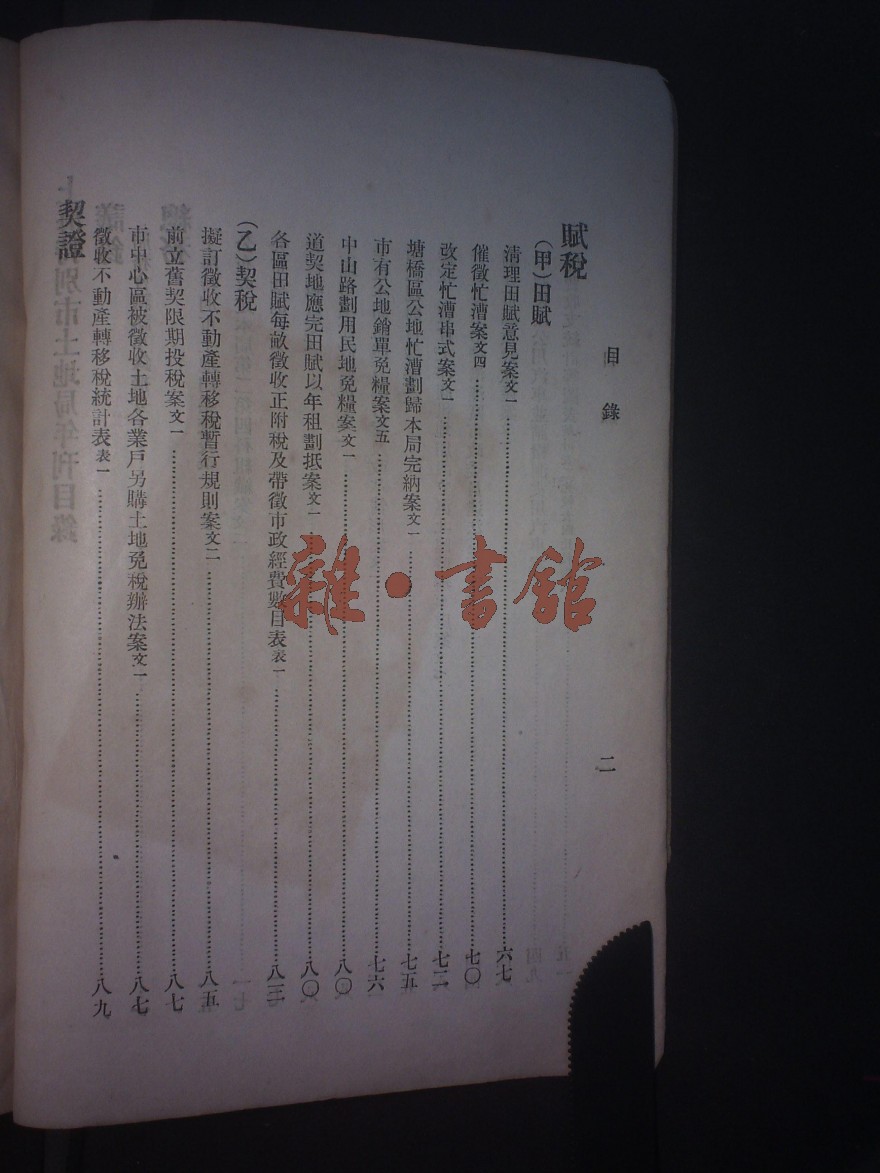 目錄 二
賦稅
(甲)田賦
清理田賦意見案文一……六七
催徵忙漕案文四……七〇
改定忙漕串式案文二……七二
塘橋區公地忙漕劃歸本局完納案文一……七五
市有公地銷單免糧案文五……七六
中山路劃用民地免糧案文一……八〇
道契地應完田賦以年租劃抵案文一……八〇
各區田賦每畝徵收正附稅及帶徵市政經費數目表表一……八三
(乙)契稅
擬訂徵收不動產轉移稅暫行規則案文二……八五
前立舊契限期投稅案文一……八七
市中心區被徵收土地各業戶另購土地免稅辦法案文一……八七
徵收不動產轉移稅統計表表一……八九
契證
雜·書館